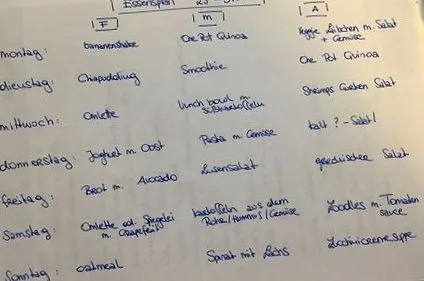 Essensplan
F
m
A
montag: Bananenshake One Pot Quinoa Veggie Laibchen m. Salat + Gemüse
dienstag: Chiapudding Smoothie One Pot Quinoa
mittwoch: Omlette Lunch bowl m. Süßkartoffeln Shrimps Gurken Salat
donnerstag: Joghurt m. Obst Pasta m. Gemüse kalt? - Salat!
freitag: Brot m. Avocado Linsensalat griechischer Salat
Samstag: Omlette od. Spiegelei m. kartoffeln aus dem Rohr/Hummus/Gemüse Zoodles m. Tomaten sauce
Sonntag: oatmeal Spinat mit Lachs Zucchinicremesuppe